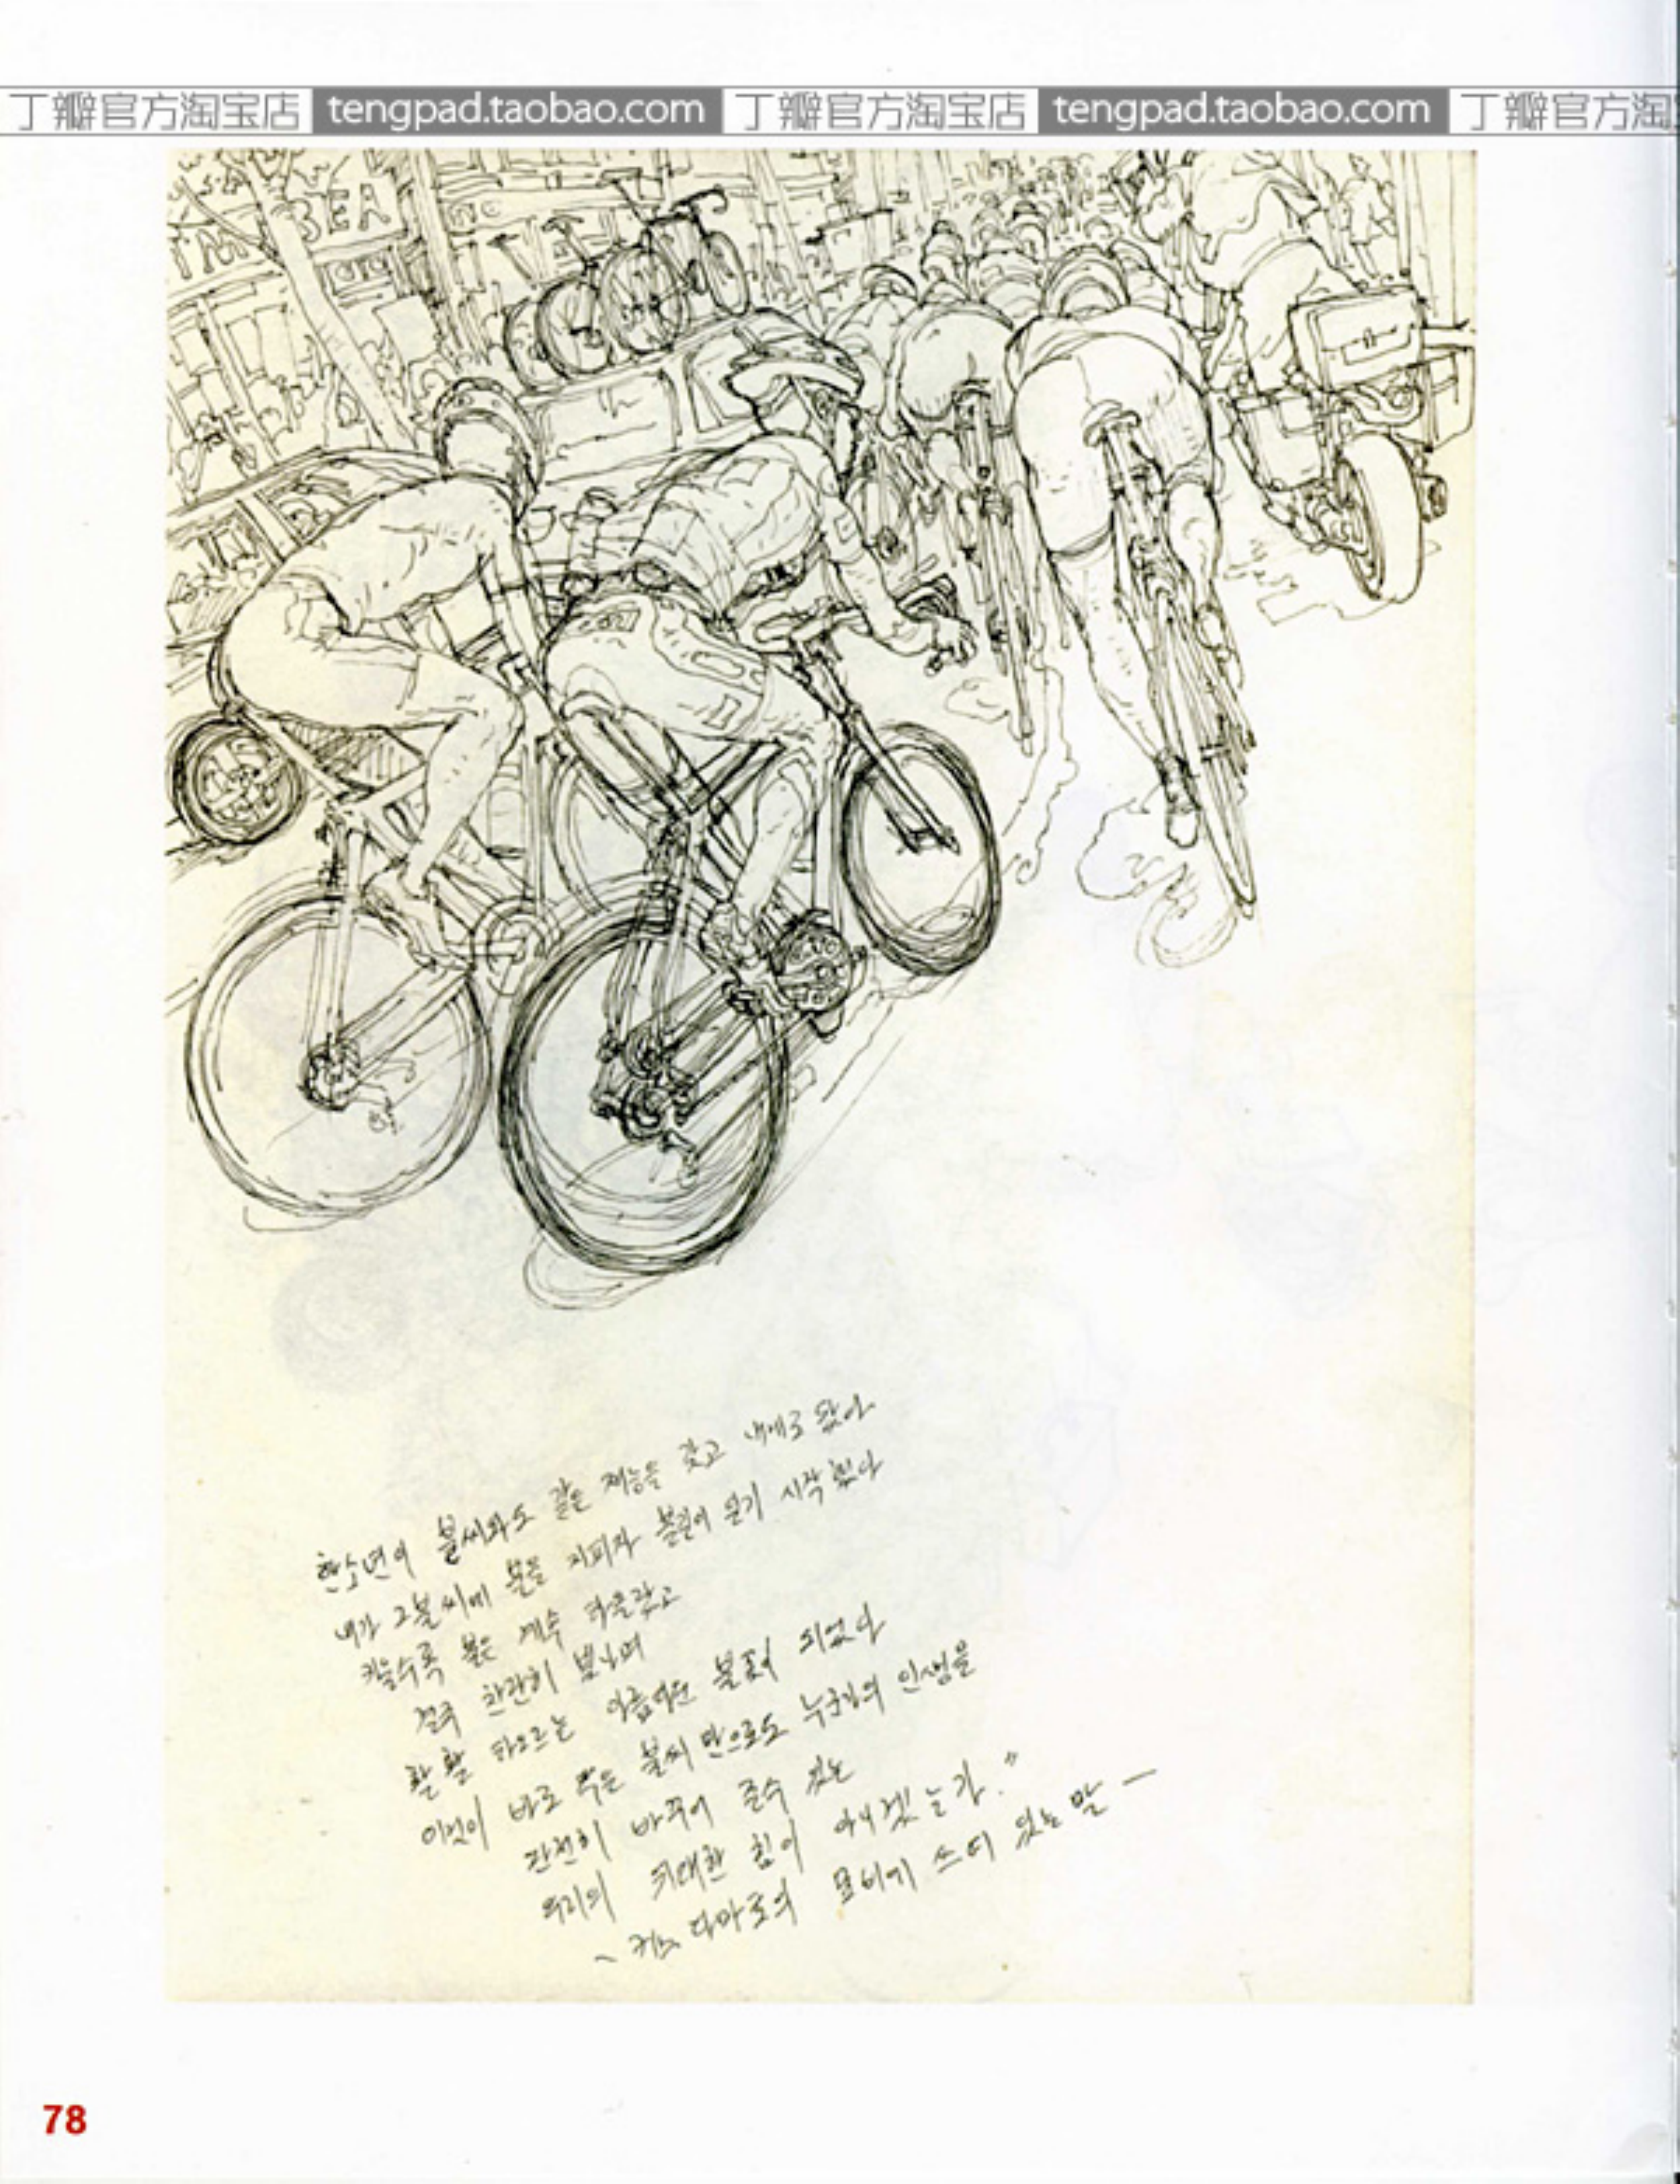 丁瓣官方淘宝店 tengpad.taobao.com 丁瓣官方淘宝店 tengpad.taobao.com 丁瓣官方淘宝
BEA
한소년이 불씨와도 같은 재능을 갖고 내게로 왔다
내가 그불씨에 불을 지피자 불길이 일기 시작했다
키울수록 불은 계속 타올랐고
결국 찬란히 빛나며
활활 타오르는 아름다운 불꽃이 되었다
이것이 바로 작은 불씨 만으로도 누군가의 인생을
완전히 바꾸어 줄수 있는
우리의 위대한 힘이 아니겠는가."
~ 커스 다마토의 묘비에 쓰여 있는 말 —
78